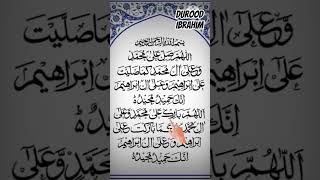 DUROOD
IBRAHIM
بِسْمِ اللهِ الرَّحْمٰنِ الرَّحِيْمِ
اَللّٰهُمَّ صَلِّ عَلٰى مُحَمَّدٍ
وَّعَلٰى اٰلِ مُحَمَّدٍ كَمَا صَلَّيْتَ
عَلٰى اِبْرَاهِيْمَ وَعَلٰى اٰلِ اِبْرَاهِيْمَ
اِنَّكَ حَمِيْدٌ مَّجِيْدٌ
اَللّٰهُمَّ بَارِكْ عَلٰى مُحَمَّدٍ وَّعَلٰى
اٰلِ مُحَمَّدٍ كَمَا بَارَكْتَ عَلٰى
اِبْرَاهِيْمَ وَعَلٰى اٰلِ اِبْرَاهِيْمَ
اِنَّكَ حَمِيْدٌ مَّجِيْدٌ